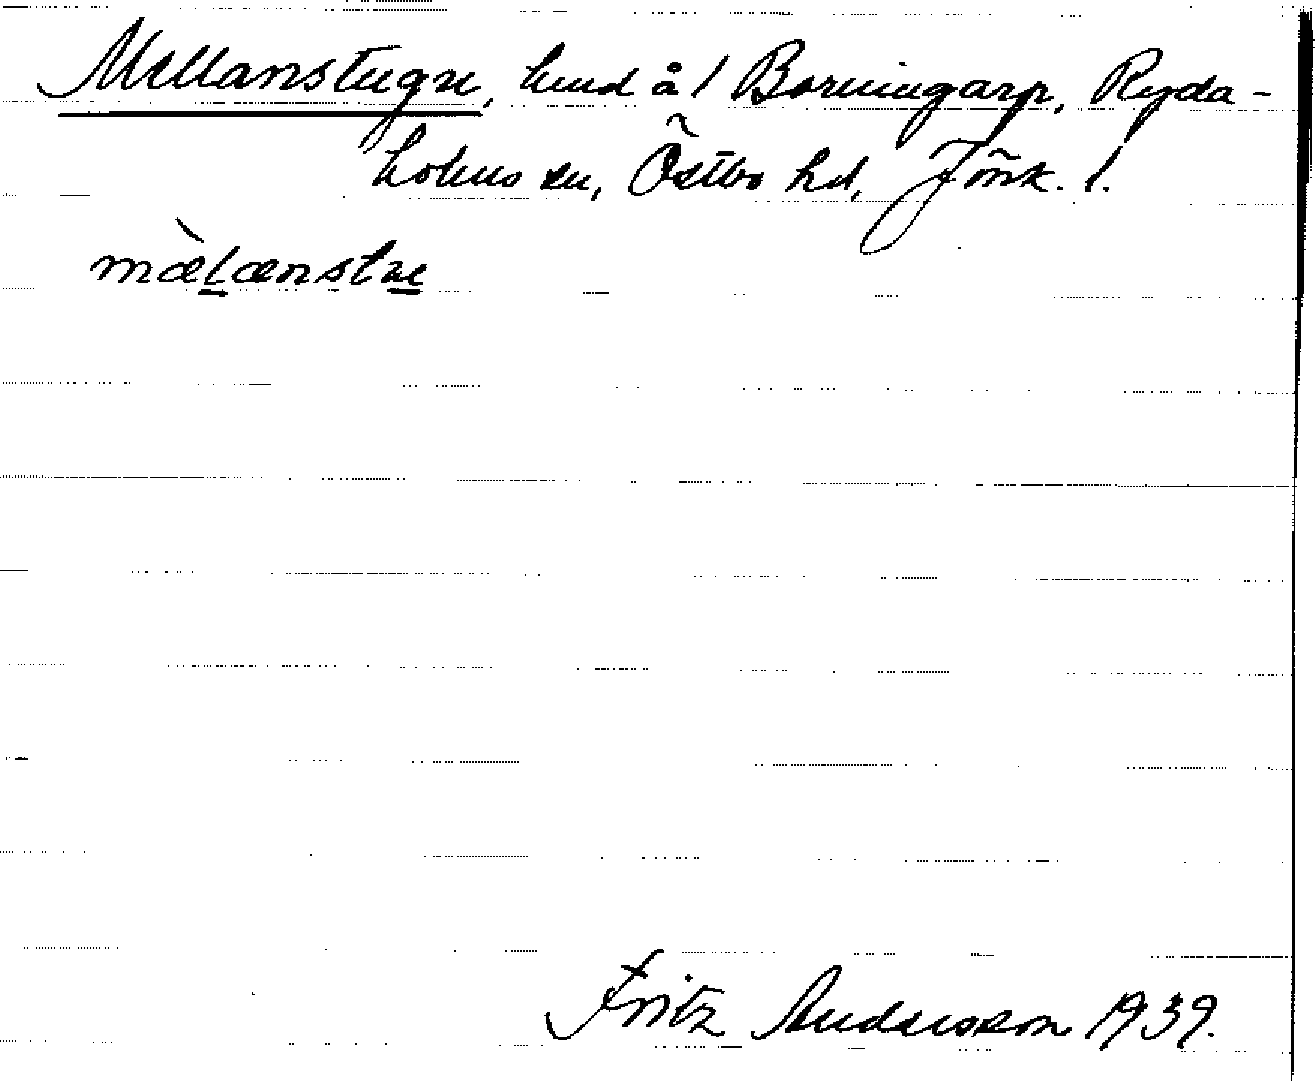 Mellanstugn, hmd å 1 Borningarp, Ryda-
holms sn, Östbo hd, Jönk. l.
mæ̀lænstu
Fritz Andersson 1939.